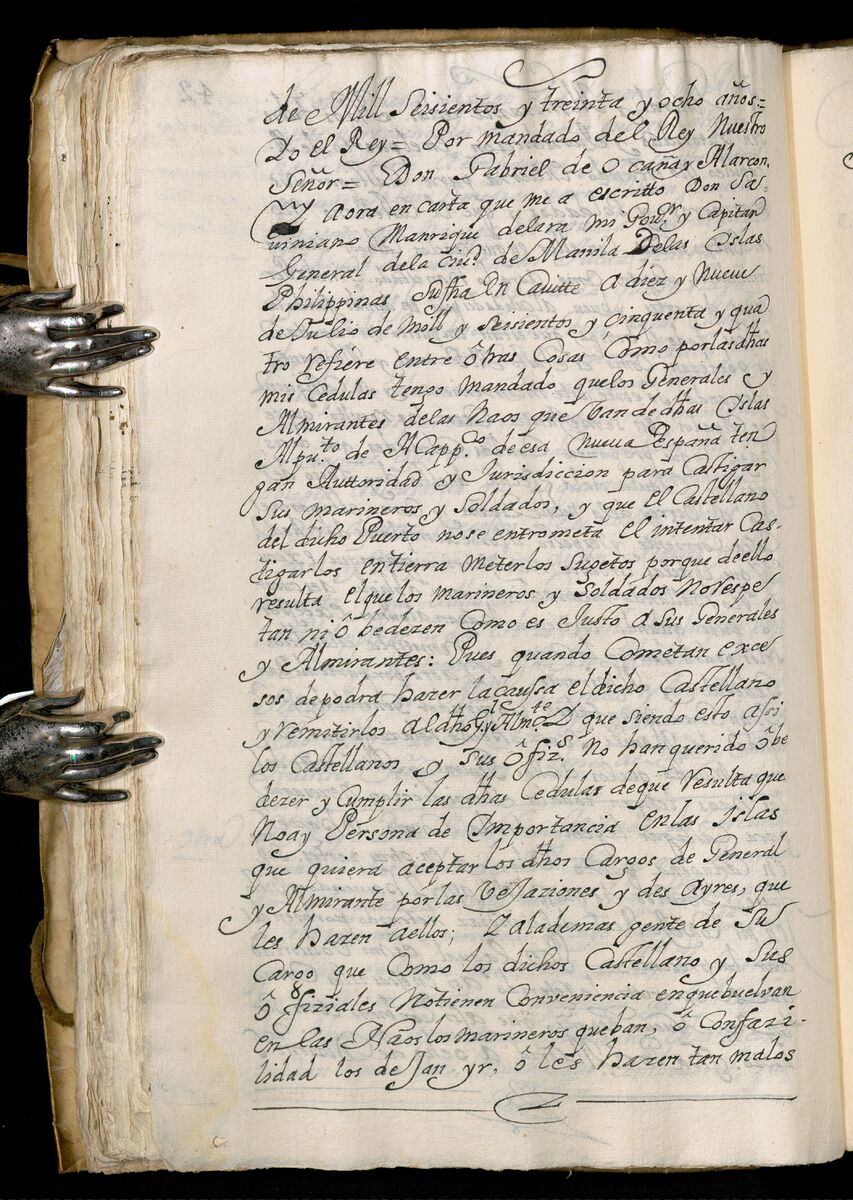 de Mill Seisientos y treinta y ocho años=
Yo el Rey= Por mandado del Rey Nuestro
Señor= Don Gabriel de Ocaña y Alarcon,
Y aora en carta que me a escritto Don Sa-
uiniano Manrique delara mi Gou.or y Capitan
General dela ciu.d de Manila Delas Islas
Philippinas Su fha En Cauitte A diez y Nueue
de Julio de Mill y Seisientos y cinquenta y qua
tro refiere entre ôtras Cosas Como por las dhas
mis Cedulas tengo mandado quelos Generales y
Almirantes delas Naos que Van de dhas Islas
Al pu.to de Acapp.co de esa Nueua España ten
gan Auttoridad y Jurisdiccion para Castigar
Sus marineros y Soldados, y que El Castellano
del dicho Puerto nose entrometa el intentar Cas-
tigarlos en tierra meterlos Sugetos porque de ello
resulta el que los marineros y Soldados No respe
tan ni ô bedezen Como es Justo a Sus Generales
y Almirantes: Pues quando Cometan exce
sos de podra hazer la caussa el dicho Castellano
y remitirlos al dho G.l y Alm.te Y que siendo esto assi
los Castellanos y Sus ôfiz.s No han querido ôbe
dezer y Cumplir las dhas Cedulas de que resulta que
No ay Persona de Importancia en las Islas
que quiera aceptar los dhos Cargos de General
y Almirante por las Vejaziones y des ayres, que
les hazen aellos; Y alademas gente de Su
Cargo que Como los dichos Castellano y Sus
ô fiziales No tienen Conveniencia en que buelvan
en las Nâos los marineros que ban, ô Con fazi-
lidad los dejan yr, ô les hazen tan malos